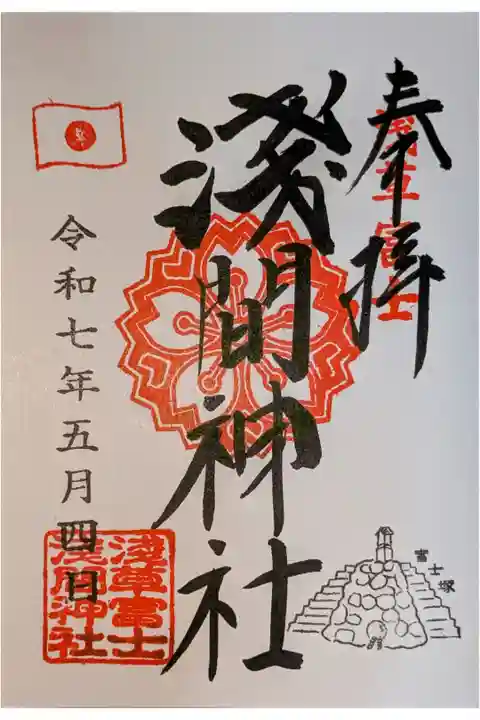 奉拝
淺草富士
淺間神社
令和七年五月四日
淺草富士
淺間神社
富士塚